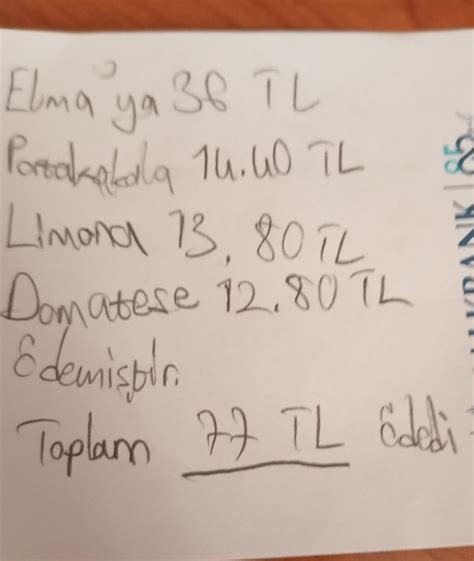 Elma'ya 36 TL
Portakala 14.40 TL
Limona 13.80 TL
Domatese 12.80 TL
Ödemiştir.
Toplam 77 TL Ödedi